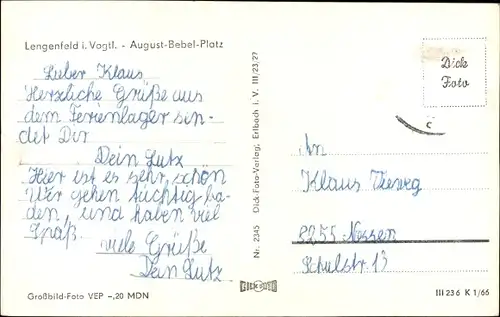 Lengenfeld i. Vogtl. - August-Bebel-Platz
Lieber Klaus
Herzliche Grüße aus
dem Ferienlager sen-
det Dir
Dein Lutz
Hier ist es sehr schön
Wir gehen tüchtig ba-
den, und haben viel
Spaß.
viele Grüße
Dein Lutz
Großbild-Foto VEP -,20 MDN
Nr. 2345 Dick-Foto-Verlag, Erlbach i. V. III/23,27
DICK FOTO
Dick
Foto
An
Klaus Vieweg
8255 Nossen
Schulstr. 13
III 23 6 K 1/66